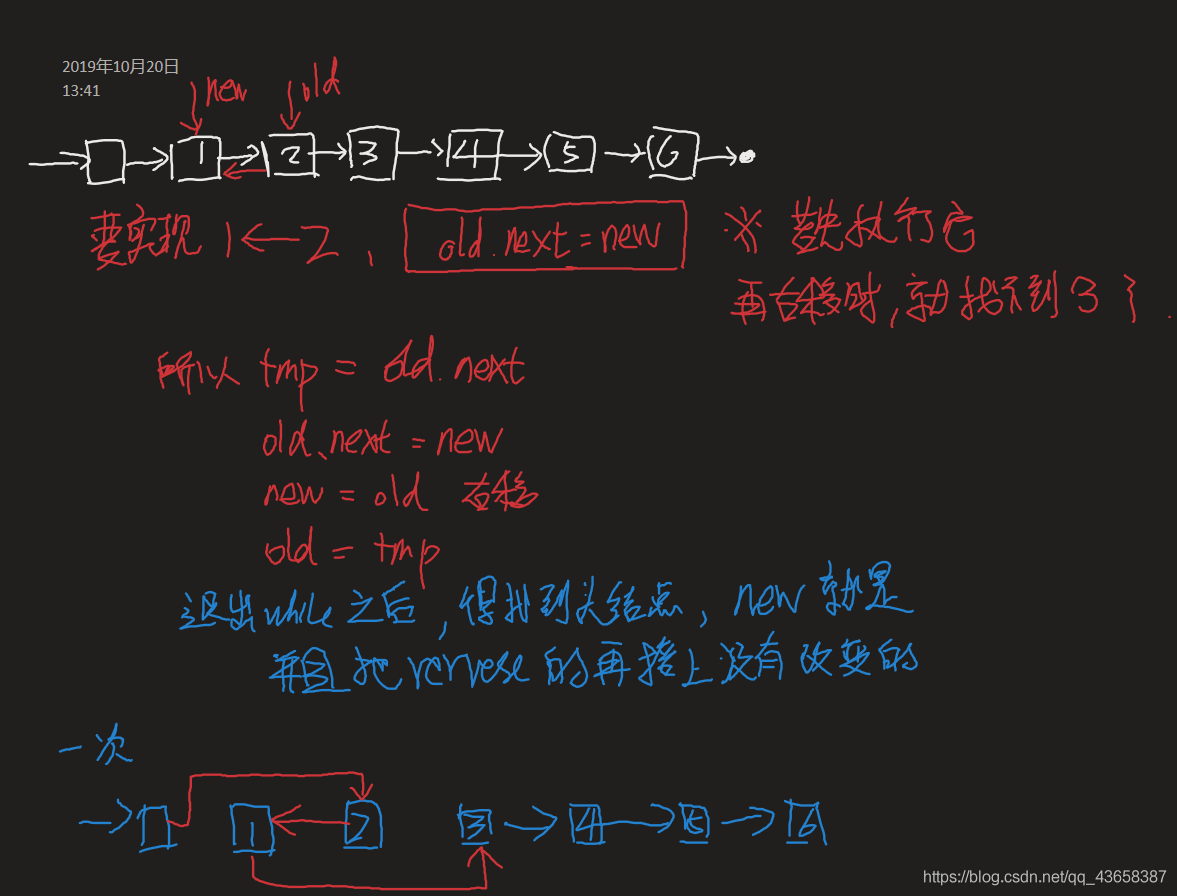 2019年10月20日
13:41
new old
1 2 3 4 5 6
要实现 1←2, old.next=new ※ 若先执行它
再右移时,就找不到 3 了.
所以 tmp = old.next
old.next = new
new = old 右移
old = tmp
退出while之后,得找到头结点,new 就是
并且把 rervese 的再接上没有改变的
一次
1 2 3 4 5 6
https://blog.csdn.net/qq_43658387